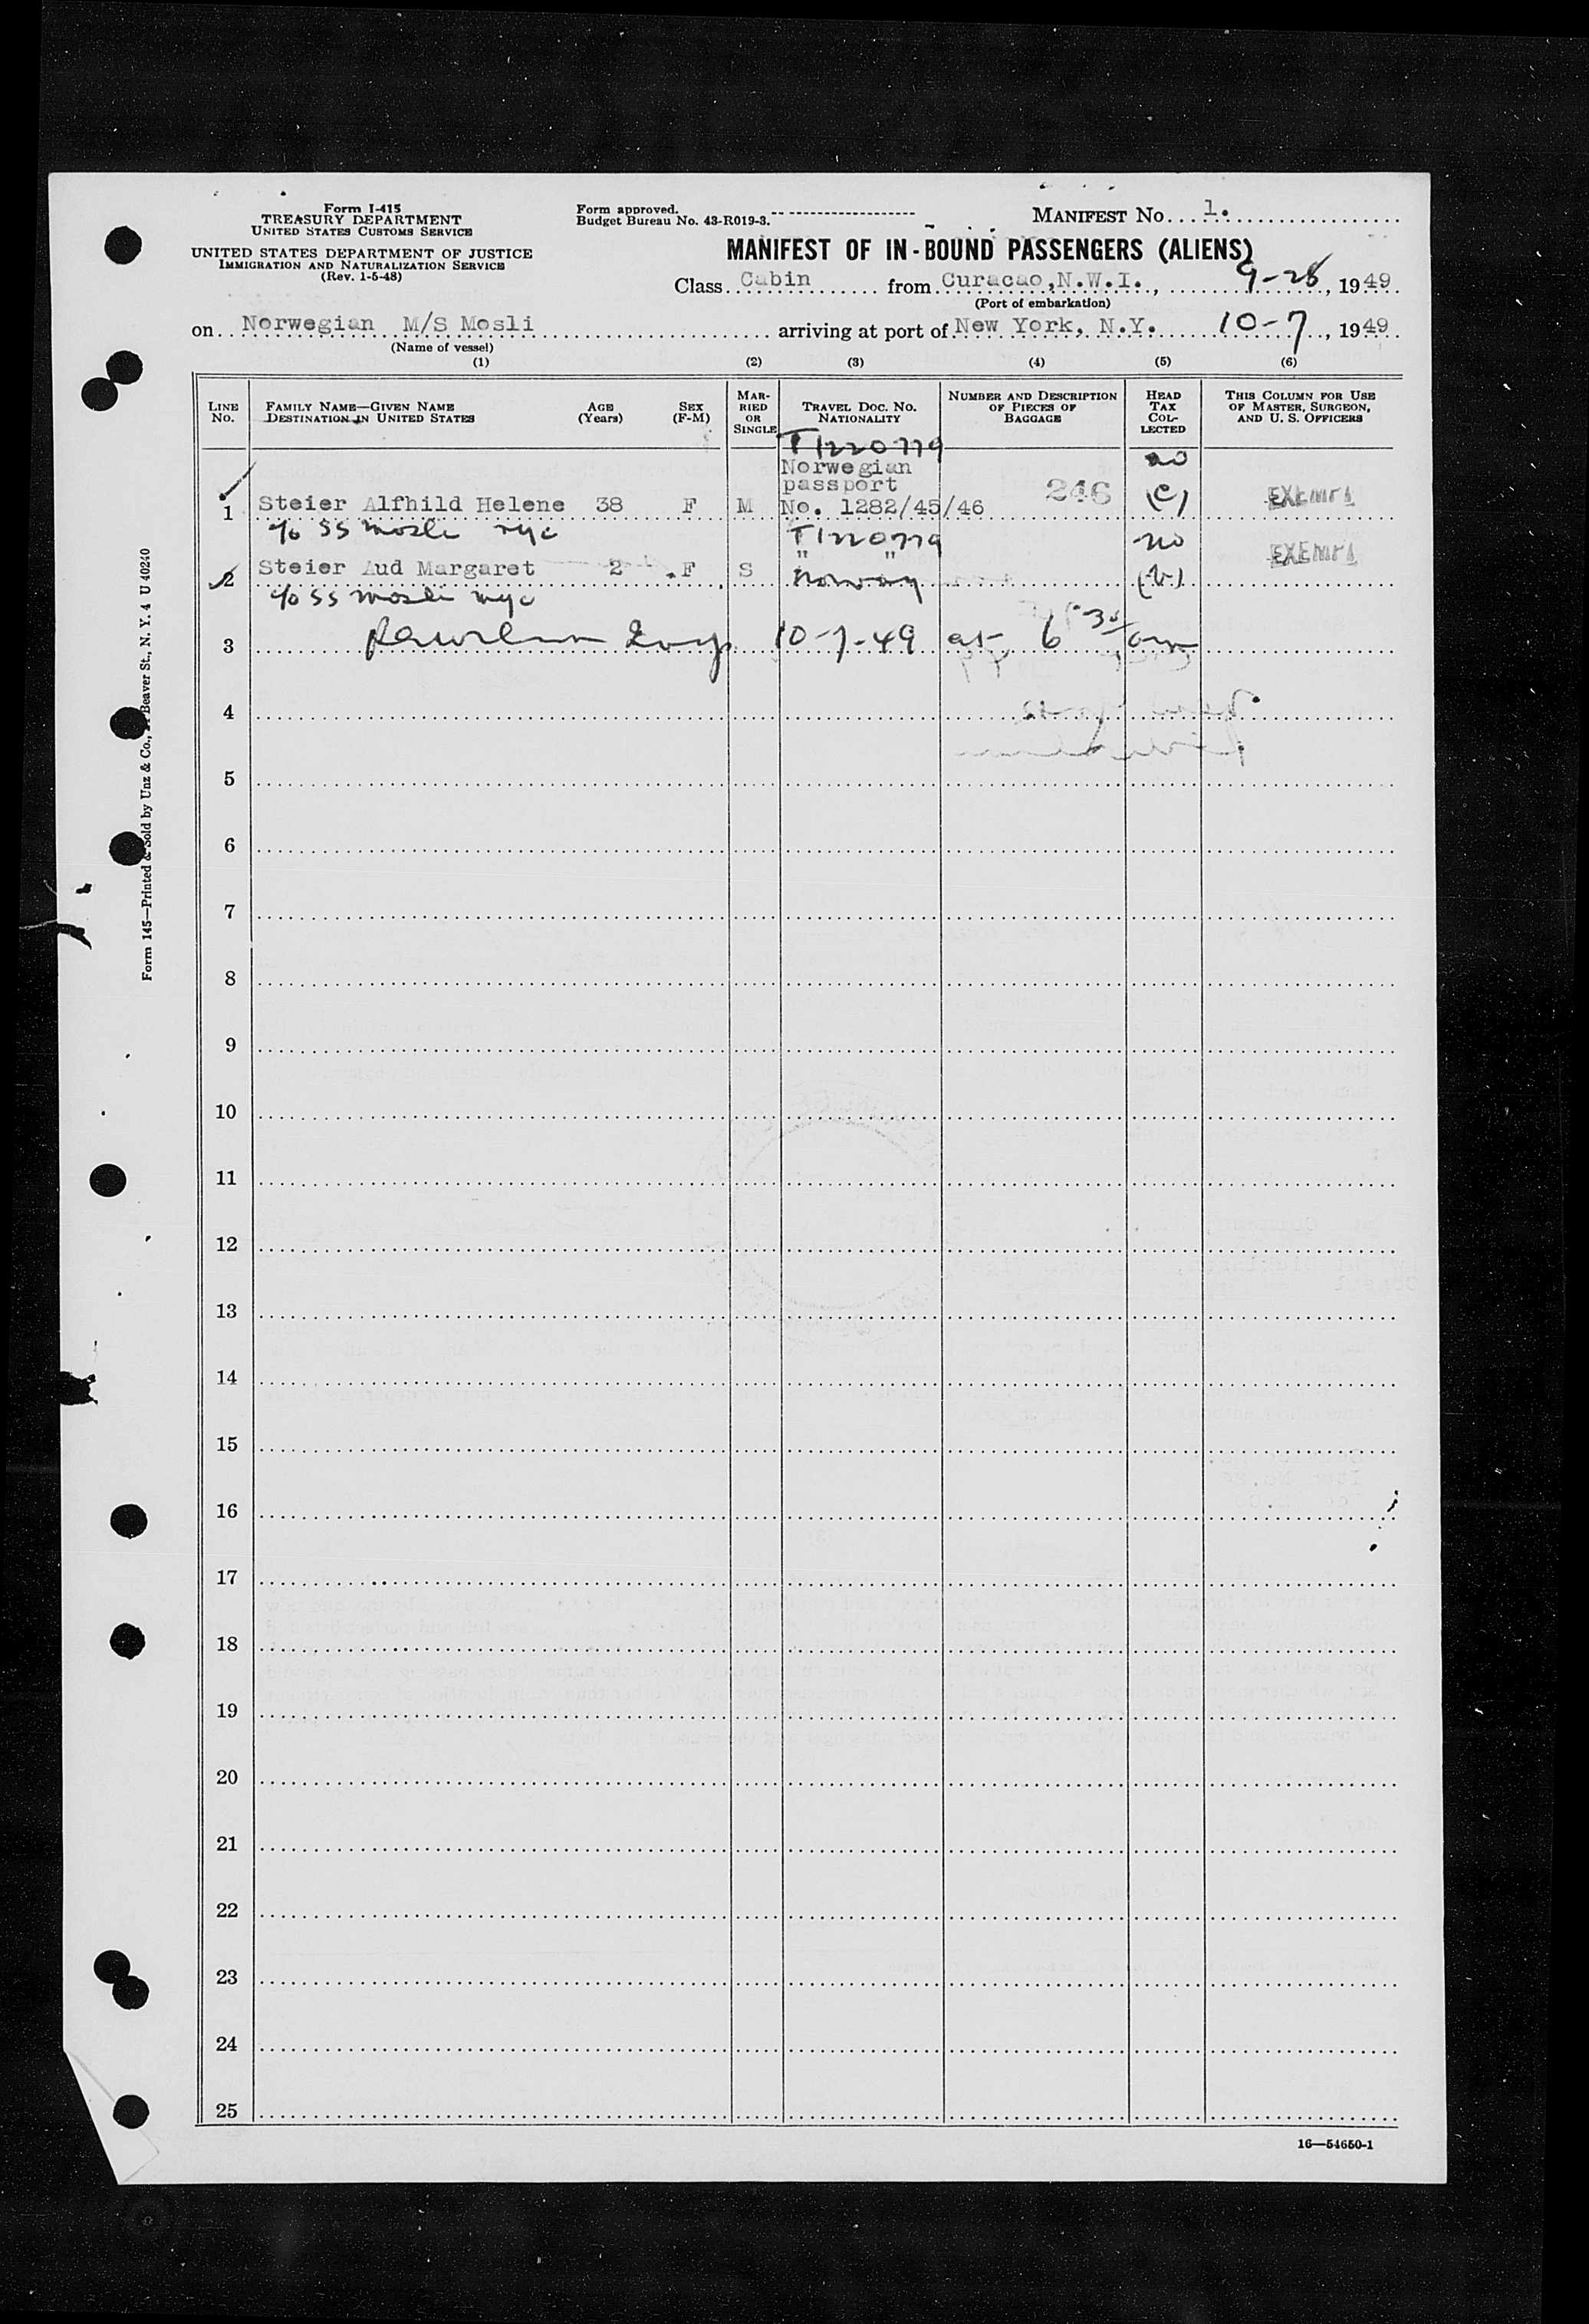 Form I-415
TREASURY DEPARTMENT
UNITED STATES CUSTOMS SERVICE
UNITED STATES DEPARTMENT OF JUSTICE
IMMIGRATION AND NATURALIZATION SERVICE
(Rev. 1-5-48)
Form approved.
Budget Bureau No. 43-R019-3.
MANIFEST NO. 1.
MANIFEST OF IN-BOUND PASSENGERS (ALIENS)
Class Cabin from Curacao, N.W.I., 9-28, 1949
(Port of embarkation)
on Norwegian M/S Mosli arriving at port of New York, N.Y. 10-7, 1949
(Name of vessel)
(1) (2) (3) (4) (5) (6)
LINE NO.
FAMILY NAME—GIVEN NAME
DESTINATION IN UNITED STATES
AGE (Years)
SEX (F-M)
MARRIED OR SINGLE
TRAVEL DOC. NO. NATIONALITY
NUMBER AND DESCRIPTION OF PIECES OF BAGGAGE
HEAD TAX COLLECTED
THIS COLUMN FOR USE OF MASTER, SURGEON, AND U. S. OFFICERS
T1220779
Norwegian no
passport
1 Steier Alfhild Helene 38 F M No. 1282/45/46 246 (c) EXEMPT
c/o SS Mosli nyc T1220779 no
" " EXEMPT
2 Steier Aud Margaret 2 F S Norway
c/o SS Mosli nyc
3 10-7-49 at 6 30/ am
4
5
6
7
8
9
10
11
12
13
14
15
16
17
18
19
20
21
22
23
24
25
16—54650-1
Form 145—Printed & Sold by Unz & Co., Beaver St., N. Y. 4 U 40240